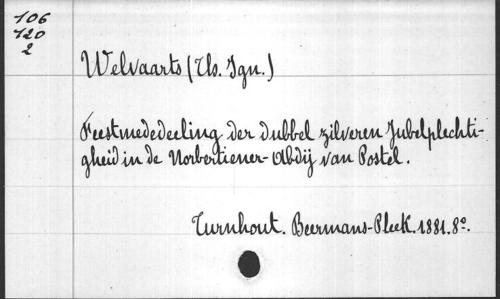 106
120
2
Welvaarts (Th. Ign.)
Feestmededeeling der dubbel zilveren Jubelplechti-
gheid in de Norbertiener-Abdij van Postel.
Turnhout. Beermans-Pleek. 1881. 8º.